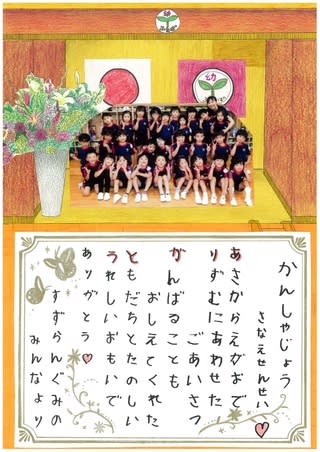 幼
かんしゃじょう
さなえせんせい
あさからえがおで
ごあいさつ
りずむにあわせた
がんばることも
おしえてくれた
ともだちとたのしい
うれしいおもいで
ありがとう
すずらんぐみの
みんなより